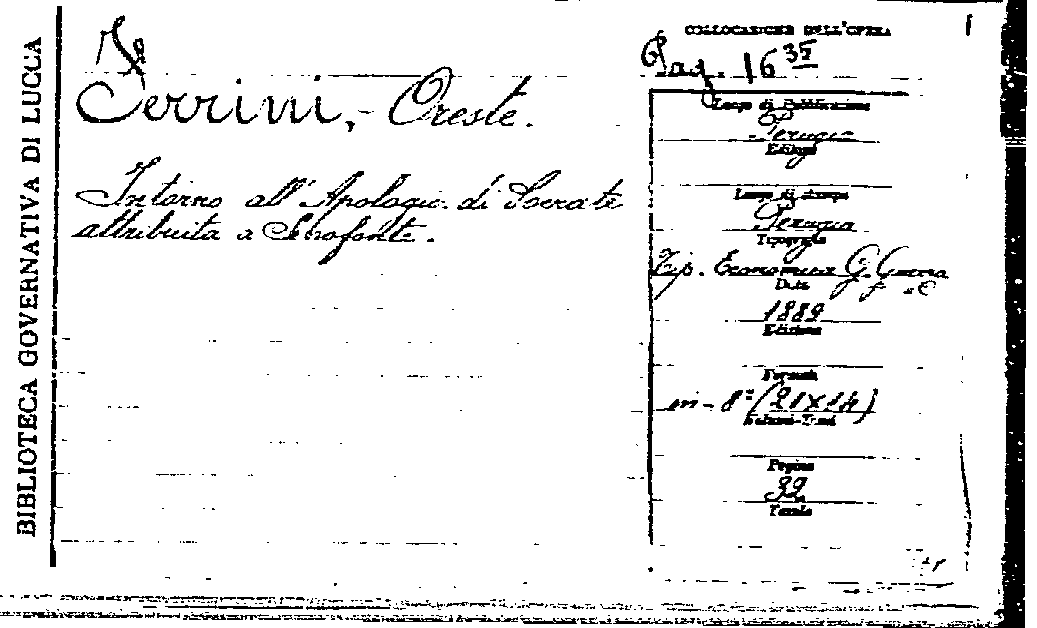 BIBLIOTECA GOVERNATIVA DI LUCCA
Ferrini, - Oreste.
Intorno all'Apologia di Socrate
attribuita a Senofonte.
COLLOCAZIONE DELL'OPERA
Pag. 16 35
Luogo di Pubblicazione
Perugia
Editore
Luogo di Stampa
Perugia
Tipografia
Tip. Economica G. Guerra
Data
1889
Edizione
Formato
in-8° (21x14)
Volumi-Tomi
Pagine
32
Tavole